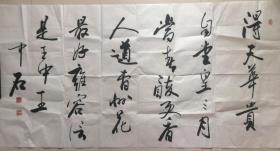 得天華貴
自堂皇三月
當春馥更香
人道曹州花
最好雍容信
是王中王
中石